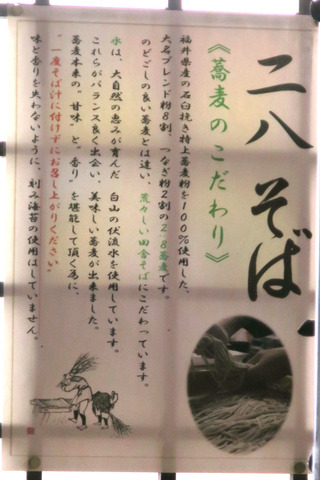 二八そば
《蕎麦のこだわり》
福井県産の石臼挽き特上蕎麦粉を100%使用した、
大名ブレンド粉8割、つなぎ粉2割の2.8蕎麦です。
のどごしの良い蕎麦とは違い、荒々しい田舎そばにこだわっています。
水は、大自然の恵みが育んだ 白山の伏流水を使用しています。
これらがバランス良く出会い、美味しい蕎麦が出来ました。
蕎麦本来の"甘味"と"香り"を堪能して頂く為に、
"一度そば汁に付けずにお召し上がりください"
味と香りを失わないように、刻み海苔の使用はしていません。